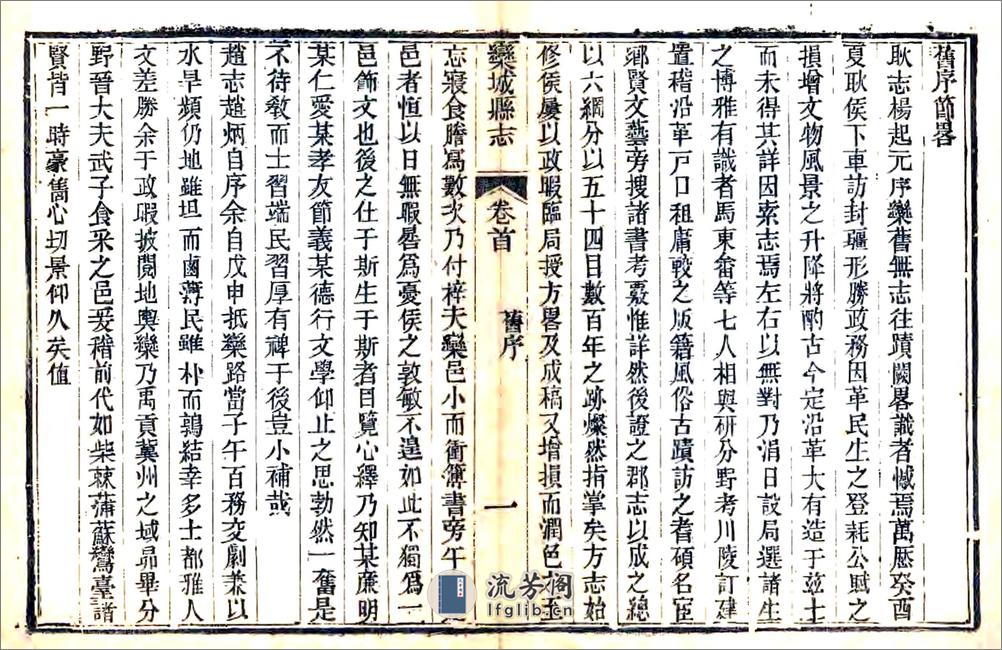 舊序節畧
耿志楊起元序欒舊無志往蹟闕畧識者慽焉萬厯癸酉
夏耿侯下車訪封疆形勝政務因革民生之登耗公賦之
損增文物風景之升降將酌古今定沿革大有造于兹土
而未得其詳因索志焉左右以無對乃涓日設局選諸生
之博雅有識者馬東畬等七人相與研分野考川陵訂建
置稽沿革戸口租庸較之版籍風俗古蹟訪之耆碩名臣
鄉賢文藝旁搜諸書考覈惟詳然後證之郡志以成之總
以六綱分以五十四目數百年之跡燦然指掌矣方志始
修侯屢以政暇臨局授方畧及成稿又增損而潤色至
欒城縣志 卷首 舊序 一
忘寢食膽寫數次乃付梓夫欒邑小而衝簿書旁午
邑者恒以日無暇晷爲憂侯之敦敏不遑如此不獨爲一
邑飾文也後之仕于斯生于斯者目覽心繹乃知某亷明
某仁愛某孝友節義某德行文學仰止之思勃然一奮是
不待敎而士習端民習厚有禆于後豈小補哉
趙志趙炳自序余自戊申抵欒路當子午百務交劇兼以
水旱頻仍地雖坦而鹵薄民雖朴而鶉結幸多士都雅人
文差勝余于政暇披閱地輿欒乃禹貢冀州之域昴畢分
野晉大夫武子食采之邑爰稽前代如柴棘蒲蘇鸞臺諸
賢皆一時豪儁心切景仰久矣值
流芳阁
lfglib.cn